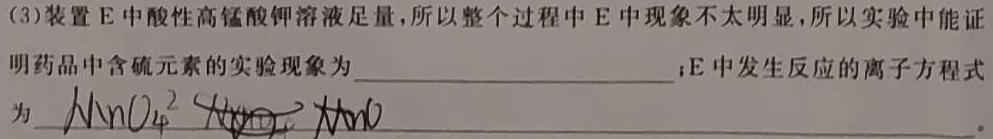 (3)装置 E 中酸性高锰酸钾溶液足量,所以整个过程中 E 中现象不太明显,所以实验中能证
明药品中含硫元素的实验现象为____________;E 中发生反应的离子方程式
为 MnO₄² MnO 。